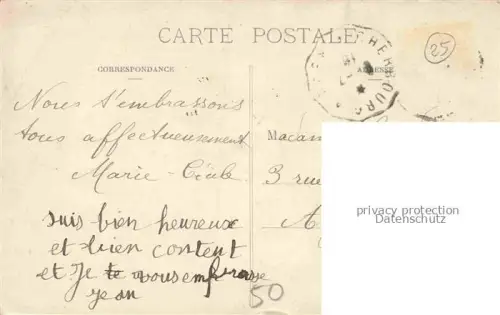 CARTE POSTALE
CORRESPONDANCE
ADRESSE
CHERBOURG
25
Nous t'embrassons
tous affectueusement
Marie-Cécile
suis bien heureux
et bien content
et Je te vous embrasse
Jean
Madam
3 rue
A
50
privacy protection
Datenschutz